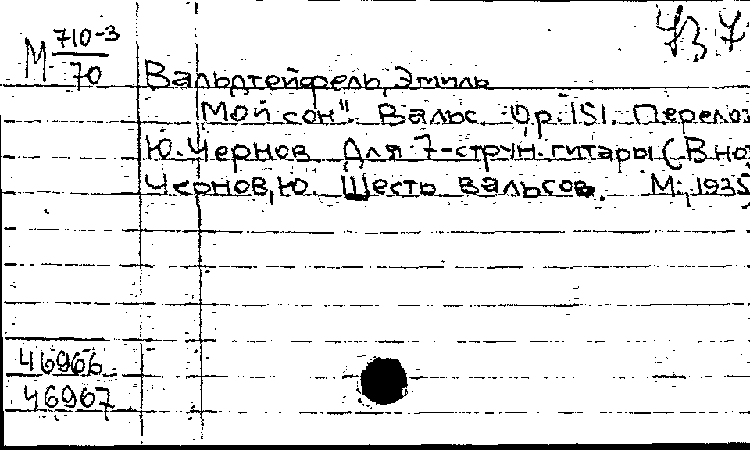 М 710-3
70
Вальдтейфель, Эмиль
"Мой сон". Вальс. Op. 151. Перелож
Ю. Чернов. Для 7-струн. гитары (В но
Чернов, Ю. Шесть вальсов. М., 1935
46966
46967